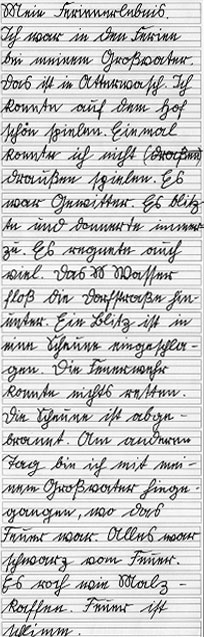 Mein Ferienerlebnis.
Ich war in den Ferien
bei meinem Großvater.
Das ist in Atterwasch. Ich
konnte auf dem Hof
schön spielen. Einmal
konnte ich nicht
draußen spielen. Es
war Gewitter. Es blitz-
te und donnerte immer-
zu. Es regnete auch
viel. Das Wasser
floß die Dorfstraße hin-
unter. Ein Blitz ist in
eine Scheune eingeschla-
gen. Die Feuerwehr
konnte nichts retten.
Die Scheune ist abge-
brannt. Am anderen
Tag bin ich mit mei-
nem Großvater hinge-
gangen, wo das
Feuer war. Alles war
schwarz vom Feuer.
Es roch wie Malz-
kaffee. Feuer ist
schlimm.